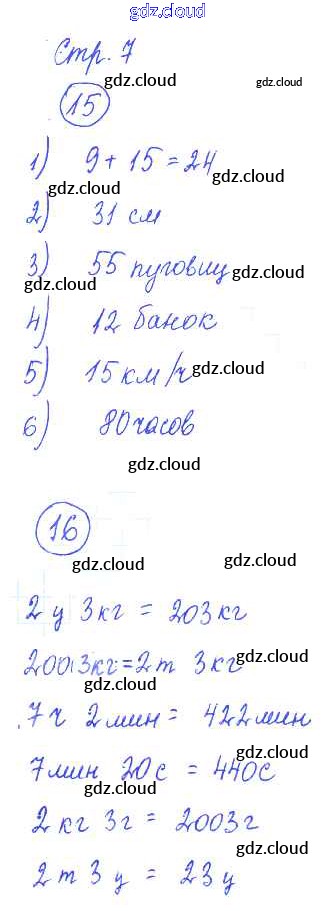 gdz.cloud
Стр. 7
gdz.cloud gdz.cloud
15
gdz.cloud
1) 9 + 15 = 24
gdz.cloud gdz.cloud
2) 31 см
gdz.cloud
3) 55 пуговиц gdz.cloud
gdz.cloud
4) 12 банок
gdz.cloud
5) 15 км/ч gdz.cloud
6) 80 часов
gdz.cloud
gdz.cloud
16
gdz.cloud gdz.cloud
2 ц 3 кг = 203 кг
gdz.cloud
2003 кг = 2 т 3 кг gdz.cloud
gdz.cloud
7 ч 2 мин = 422 мин
gdz.cloud
7 мин 20 с = 440 с
gdz.cloud
2 кг 3 г = 2003 г
gdz.cloud gdz.cloud
2 т 3 ц = 23 ц